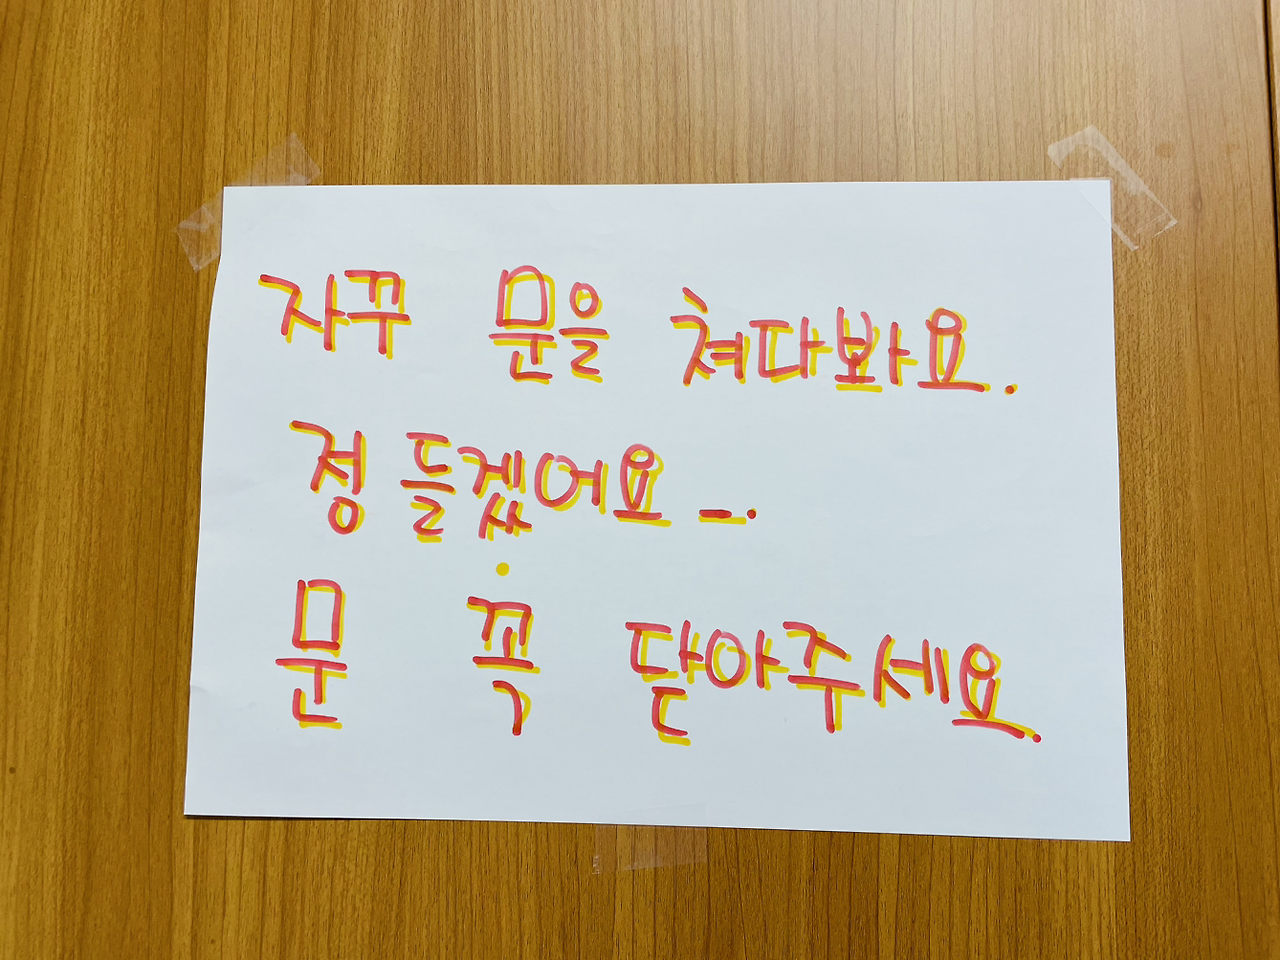 자꾸 문을 쳐다봐요.
정 들겠어요-.
문 꼭 닫아주세요.